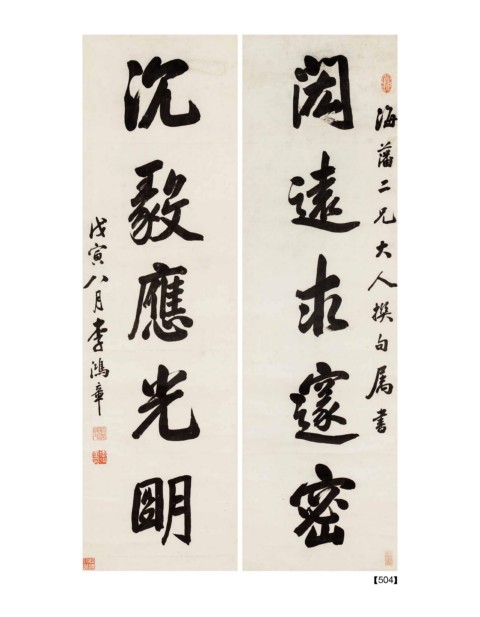 海藩二兄大人撰句属書
闳遠求邃密
沉毅應光明
戊寅八月李鴻章
【504】